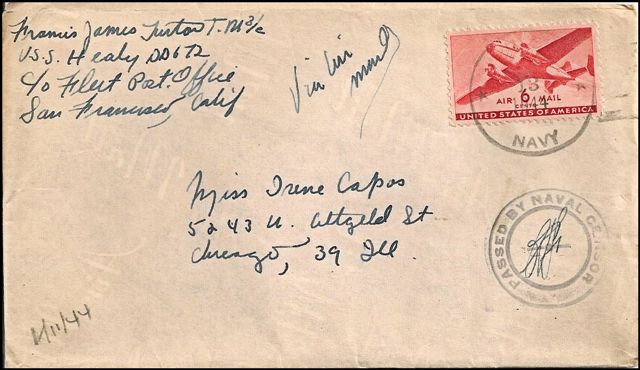 Francis James Turton T.M3/c
U.S.S. Healy DD672
C/o Fleet Post Office
San Francisco, Calif
Via Air
mail
AIR 6 MAIL
CENTS
UNITED STATES OF AMERICA
NAVY
Miss Irene Capos
5243 W. Altgeld St
Chicago, 39 Ill.
PASSED BY NAVAL CENSOR
/11/44